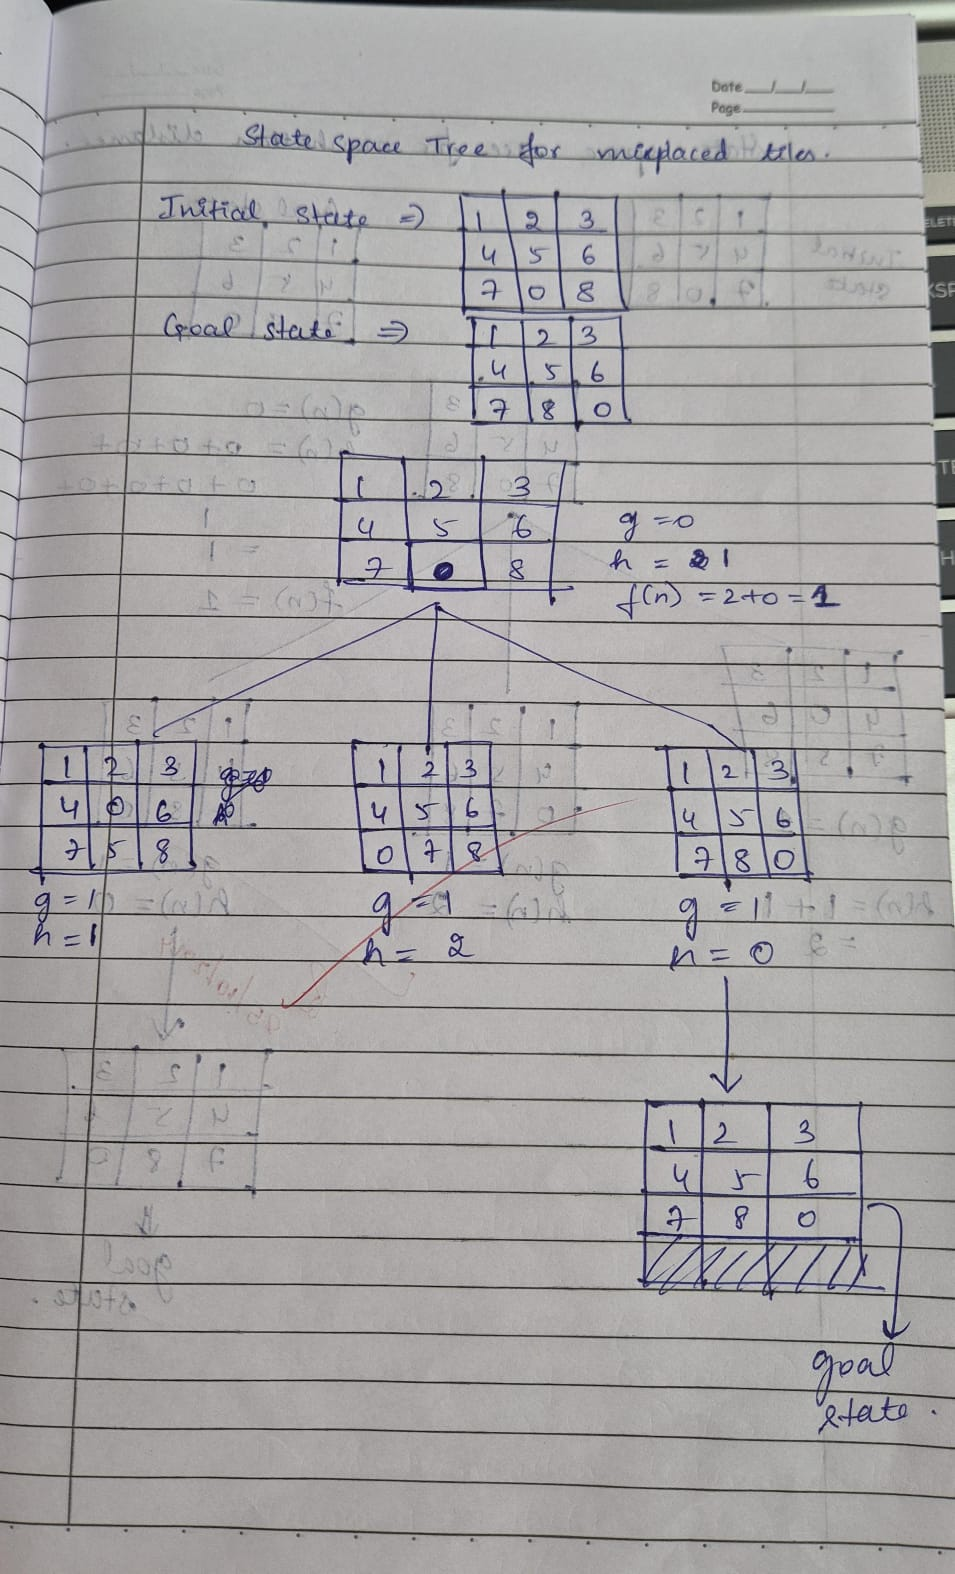 Date
Page
State space Tree for misplaced tiles.
Initial state ⇒
1 2 3
4 5 6
7 0 8
Goal state ⇒
1 2 3
4 5 6
7 8 0
1 2 3
4 5 6
7 0 8
g = 0
h = 1
f(n) = 2+0 = 1
1 2 3
4 0 6
7 5 8
g = 1
h = 1
1 2 3
4 5 6
0 7 8
g = 1
h = 2
1 2 3
4 5 6
7 8 0
g = 1
h = 0
1 2 3
4 5 6
7 8 0
goal
state.